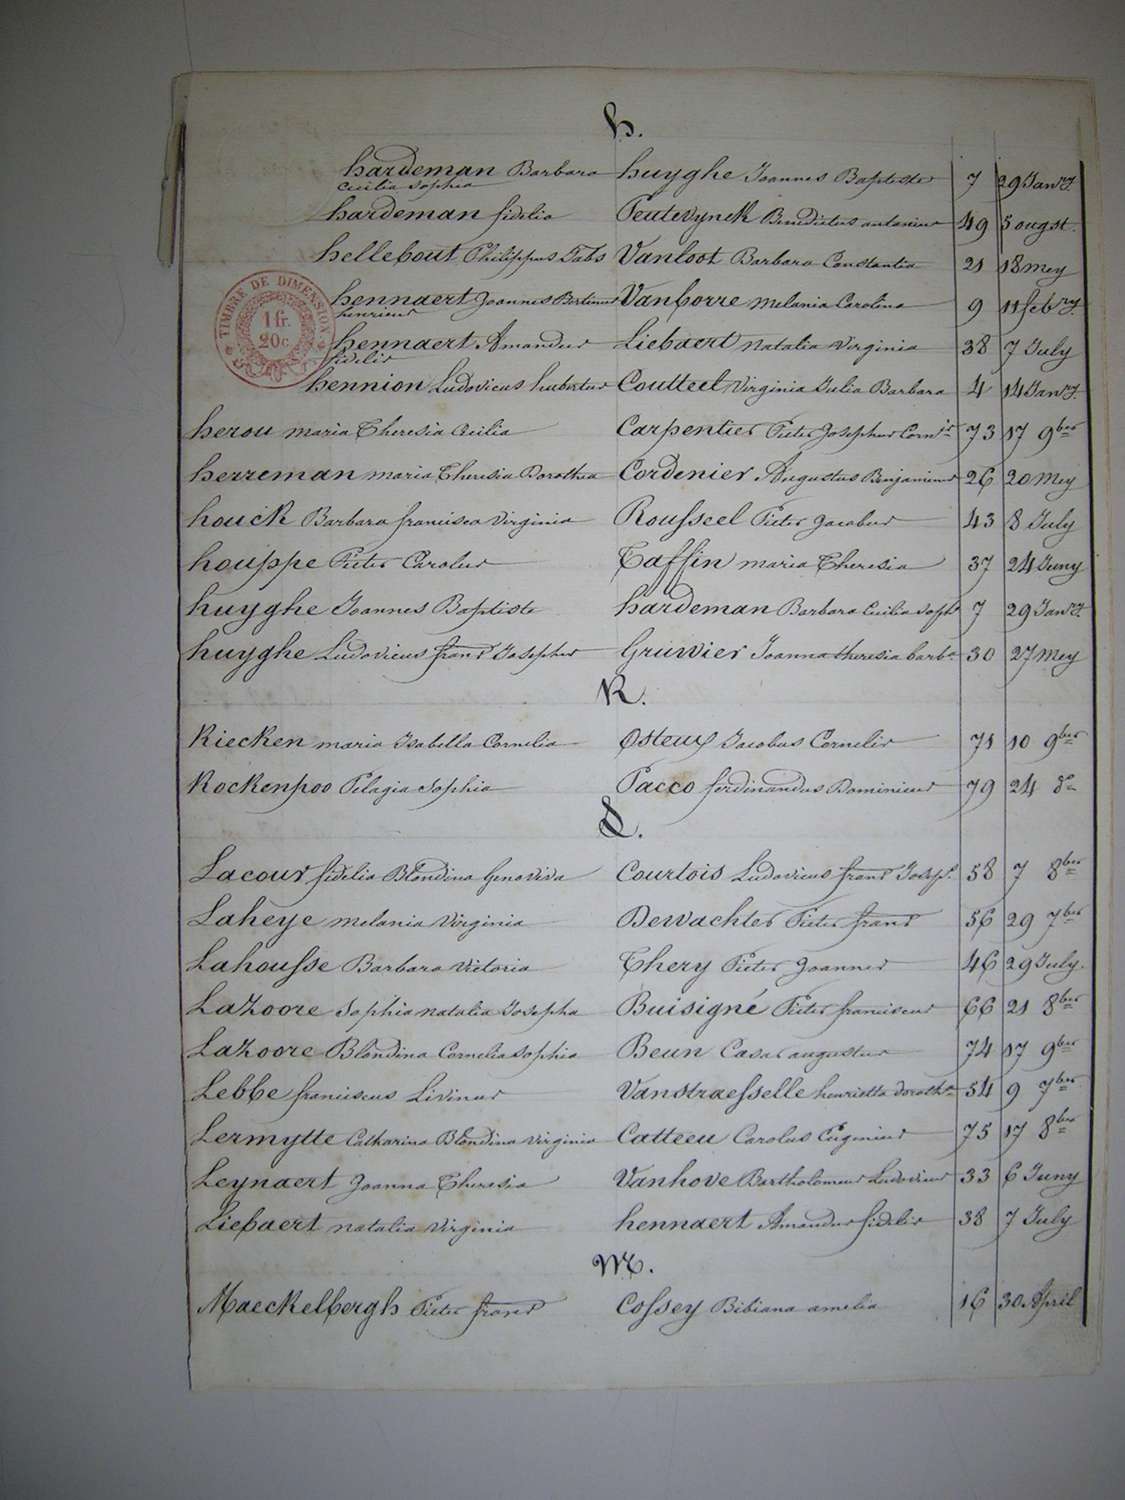 h.
hardeman Barbara huyghe Joannes Baptiste 7 29 Janry.
Cecilia Sophia
hardeman fidelia Peutevynck Benedictus antonius 49 5 ougst.
hellebout Philippus Jabs Vanloot Barbara Constantia 21 18 mey
hennaert Joannes Bertinus Vanborre Melania Carolina 9 11 febry.
henricus
TIMBRE DE DIMENSION
1 fr.
20c.
hennaert Amandus Liebaert Natalia Virginia 38 7 July
fidelis
hennion Ludovicus hubertus Coutteel Virginia Julia Barbara 4 14 Janry.
herou maria Theresia Cecilia Carpentier Pieter Josephus Cornis 73 17 9ber
herreman maria Theresia Dorothea Cordenier Augustus Benjaminus 26 20 mey
houck Barbara francisca Virginia Rousseel Pieter Jacobus 43 8 July
houppe Pieter Carolus Taffin maria Theresia 37 24 Juny
huyghe Joannes Baptiste hardeman Barbara Cecilia soph 7 29 Janry.
huyghe Ludovicus frans Josephus Gruwier Joanna theresia barba 30 27 Mey
K.
Kiecken maria Isabella Cornelia Osteux Jacobus Cornelis 71 10 9ber
Kockenpoo Pelagia Sophia Pacco ferdinandus Dominicus 79 24 do
L.
Lacour fidelia Blondina Genoviva Courtois Ludovicus frans Joseph. 58 7 8ber
Laheye Melania Virginia Dewachter Pieter frans 56 29 7ber
Lahousse Barbara Victoria Thery Pieter Joannes 46 29 July.
Lazoore Sophia natalia Josepha Buisigné Pieter franciscus 66 21 8ber
Lazoore Blondina Cornelia Sophia Beun Casar augustus 74 17 9ber
Lebbe franciscus Livinus Vanstraesselle henrietta Dorotha 54 9 7ber
Lermytte Catharina Blondina Virginia Catteeu Carolus Eugenius 75 17 8ber
Leynaert Joanna Theresia Vanhove Bartholomeus Ludovicus 33 6 Juny
Liebaert Natalia Virginia hennaert Amandus fidelis 38 7 July
M.
Maeckelbergh Pieter frans Cossey Bibiana amelia 16 30 April